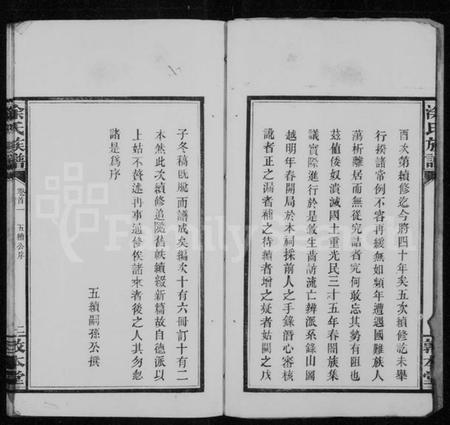 涂氏族譜
酉次第續修迄今將四十年矣五次續修訖未舉
行揆諸常例不容再緩無如頻年遭遇國難族人
萬析離居而無從完詰者究何敢忘其勢有阻也
茲值倭奴潰滅國土重光民三十五年春閤族集
議實際進行於是敦生齒訪流亡辨派系錄山圖
越明年春開局於本祠採前人之手錄潛心審核
訛者正之漏者補之待續者增之疑者姑闕之戊
敦本堂
子冬稿既脫而譜成矣編次十有六冊訂十有二
本然此次續修追隨舊帙續綴新篇故自德派以
上姑不贅述再事通修俟諸來者後之人其勿忽
諸是為序
五續嗣孫公撰
涂氏族譜
卷首一
五續公序
二
敦本堂